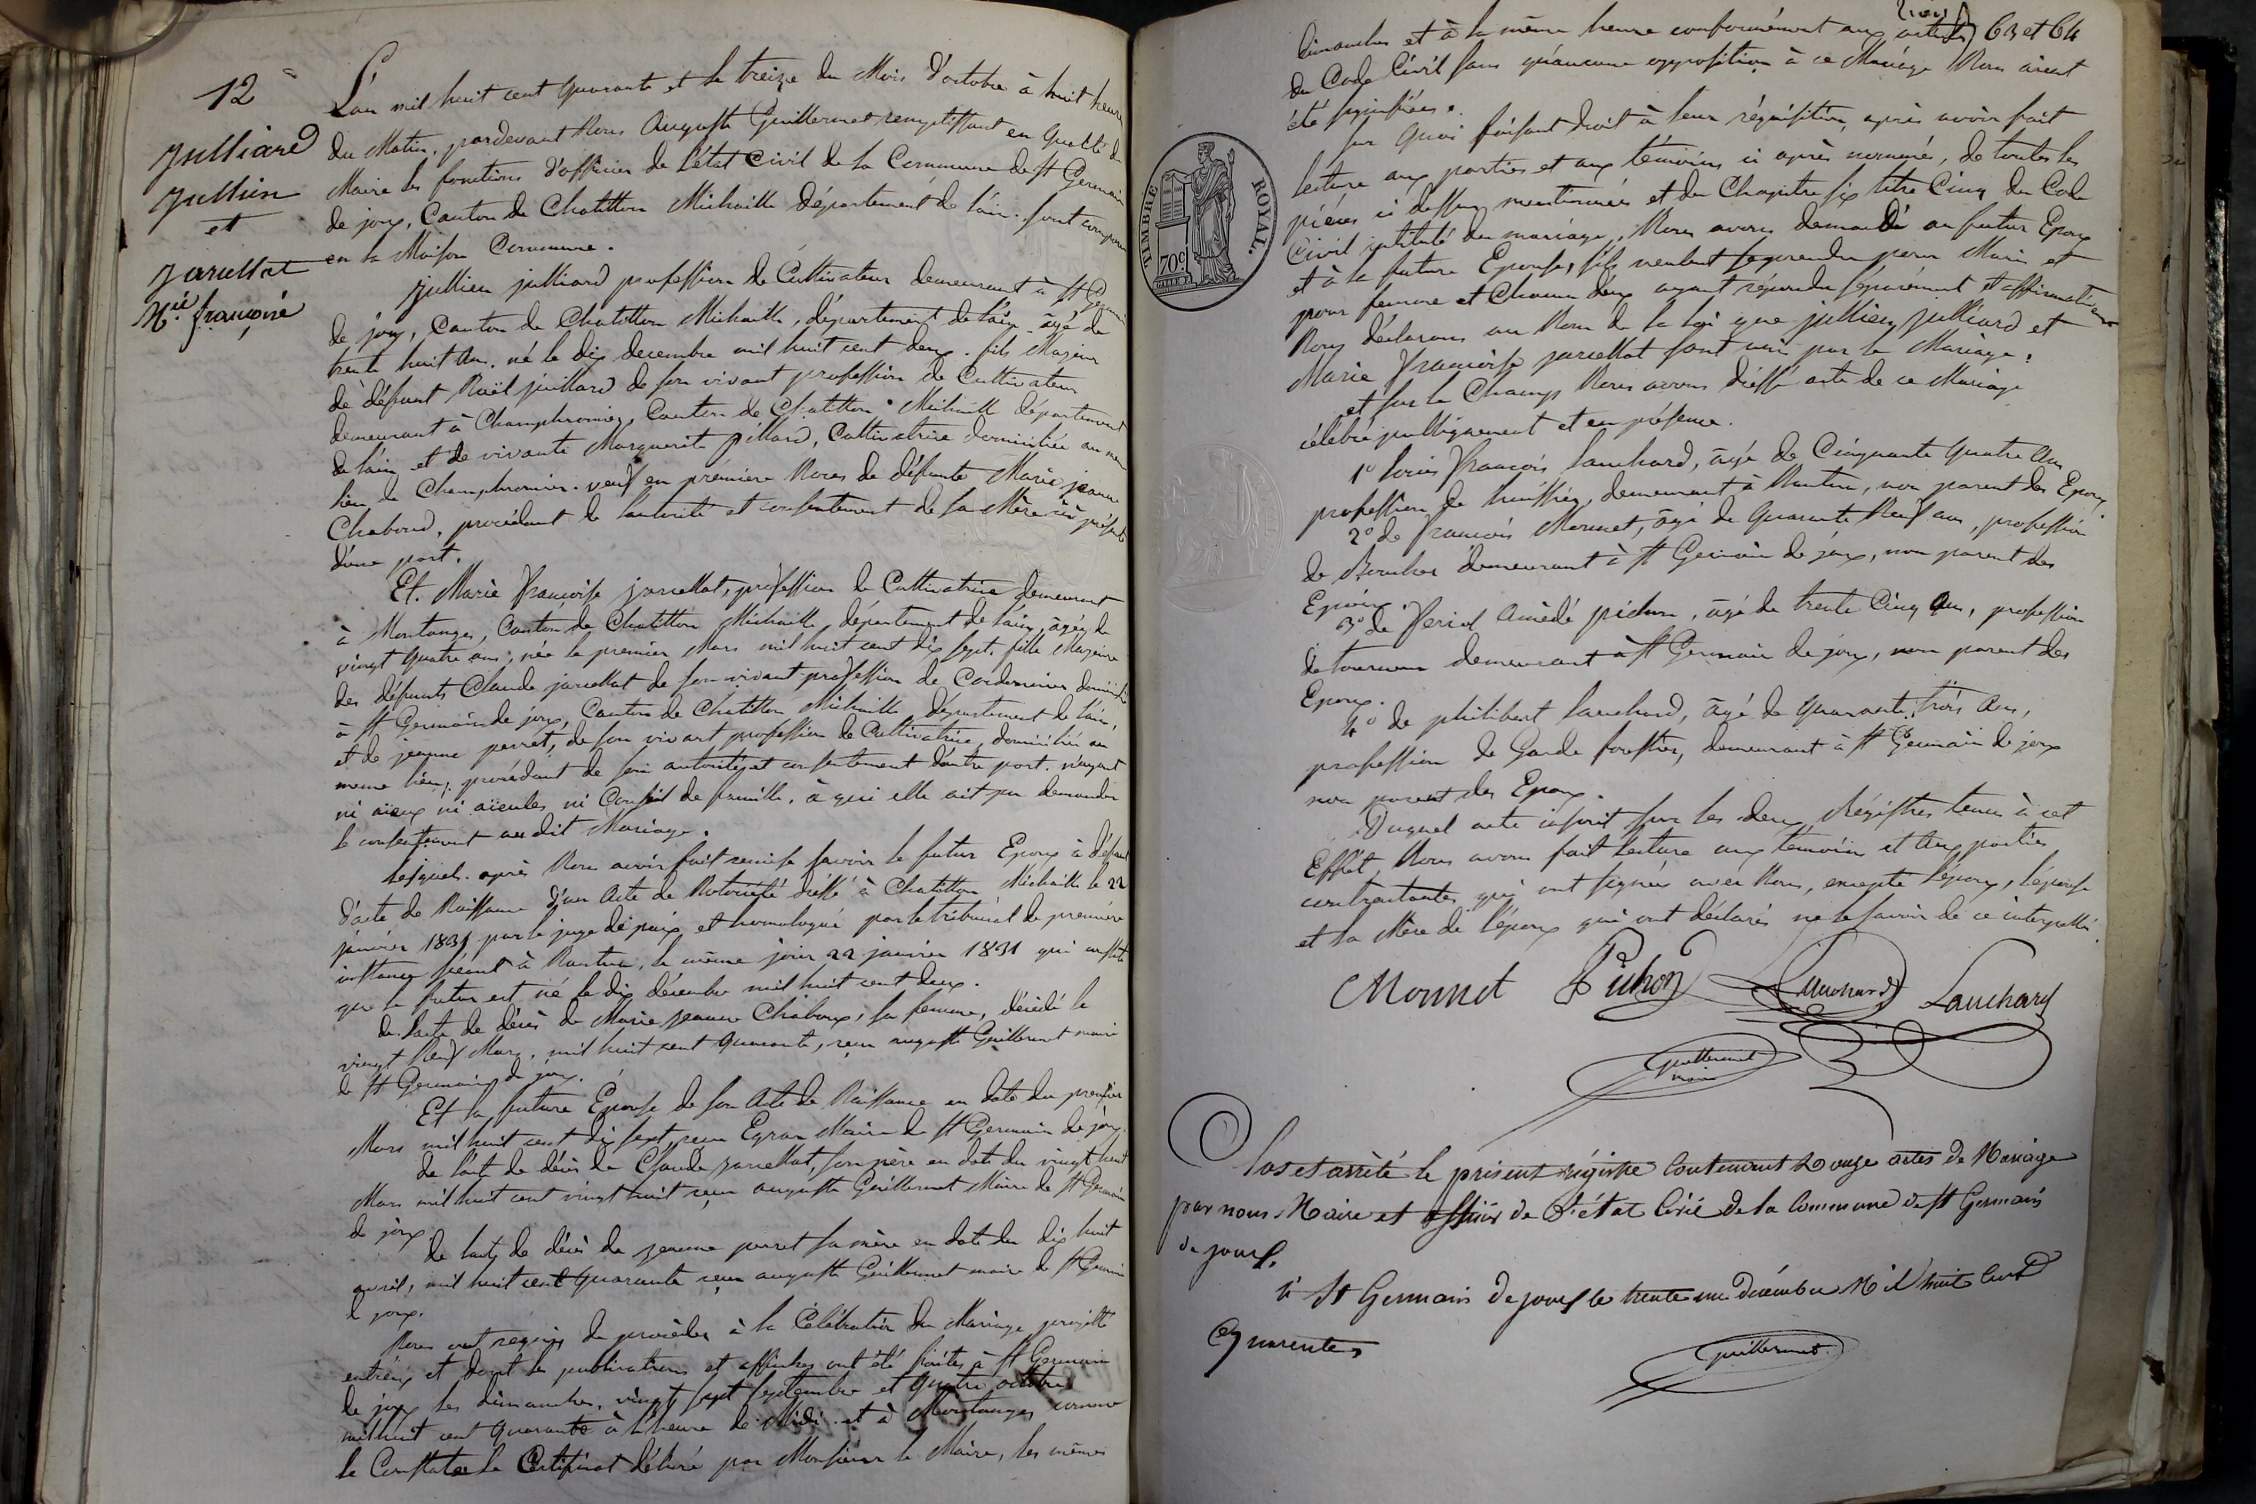 12
Julliard
Jullien
et
Jarcellat
Mie françoise
L'an mil huit cent quarante et le treize du Mois d'octobre à huit heures
du Matin, pardevant Nous Auguste Guillermet remplissant en qualité de
Maire les fonctions d'officier de l'état Civil de la Commune de St Germain
de joux, Canton de Chatillon Michaille département de l'ain. sont comparus
en la Maison Commune.
Jullien julliard profession de Cultivateur demeurant à St Germain
de joux, Canton de Chatillon Michaille, département de l'ain âgé de
trente huit ans. né le dix decembre mil huit cent deux. fils Majeur
de défunt Noël juillard de son vivant profession de Cultivateur
demeurant à Champfromier, Canton de Chatillon Michaille département
de l'ain et de vivante Marguerite Cultivatrice domiciliée au même
lieu de Champfromier. veuf en première Noces de défunte Marie jeanne
Chaboud, procédant de l'autorité et consentement de sa Mère ici présente
d'une part.
Et. Marie françoise jarcellat, profession de Cultivatrice demeurant
à Montanges, Canton de Chatillon Michaille, département de l'ain, âgée de
vingt quatre ans, née le premier Mars mil huit cent dix sept. fille Majeure
des défunts Claude jarcellat de son vivant profession de Cordonnier domicilié
à St Germain de joux, Canton de Chatillon Michaille, département de l'ain,
et de jeanne perret, de son vivant profession de Cultivatrice, domiciliée au
meme lieu; procédant de son autorité et consentement d'autre part. n'ayant
ni aïeux ni aïeules ni Conseil de famille, à qui elle ait pu demander
le consentement au dit Mariage.
Lesquels. après Nous avoir fait remise savoir le futur Epoux à défaut
d'acte de Naissance d'un Acte de Notoriété dressé à Chatillon Michaille le 22
janvier 1831 par le juge de paix et homologué par le tribunal de première
instance séant à Nantua, le même jour 22 janvier 1831 qui constate
que le futur est né le dix décembre mil huit cent deux.
de l'acte de décès de Marie jeanne Chaboux, sa femme, décédé le
vingt Neuf Mars, mil huit cent quarante, reçu auguste Guillermet maire
de St Germain de joux.
Et la future Epouse de son Acte de Naissance en date du premier
Mars mil huit cent dix sept, reçu Egraz Maire de St Germain de joux
de l'acte de décès de Claude jarcellat, son père en date du vingt huit
Mars mil huit cent vingt huit reçu auguste Guillermet Maire de St Germain
de joux.
de l'acte de décès de jeanne perret sa mère en date du dix huit
avril, mil huit cent quarante reçu auguste Guillermet maire de St Germain
de joux.
Nous ont requis de procéder à la Célébration du Mariage projetté
entr'eux et dont les publications et affiches ont été faites à St Germain
de joux les dimanches, vingt sept septembre et quatre octobre
mil huit cent quarante à l'heure de Midi. et à Montanges comme
le Constate le Certificat délivré par Monsieur le Maire, les mêmes
dimanches et à la même heure conformément aux articles 63 et 64
du Code Civil sans qu'aucune opposition à ce Mariage Nous aient
été signifiées.
Sur Quoi faisant droit à leur réquisition, après avoir fait
lecture aux parties et aux témoins ci après nommés, de toutes les
pièces ci dessus mentionnées et du Chapitre six titre Cinq du Code
Civil intitulé du mariage, Nous avons demandé au futur Epoux
et à la future Epouse, s'ils veulent se prendre pour Mari et
pour femme et Chacun deux ayant répondu séparément et affirmativement
Nous déclarons au Nom de la loi que jullien julliard et
Marie françoise jarcellat sont unis par le Mariage.
et sur le Champ Nous avons dressé acte de ce Mariage
célébré publiquement et en présence.
1° Louis françois Lanchard, âgé de Cinquante quatre Ans
profession de huissier, demeurant à Nantua, non parent des Epoux.
2° de françois Monnet, âgé de quarante Neuf ans, profession
de demeurant à St Germain de joux, non parent des
Epoux.
3° de Amédé pichon, âgé de trente Cinq Ans, profession
de tourneur demeurant à St Germain de joux, non parent des
Epoux.
4° de philibert Lanchard, âgé de quarante trois Ans,
profession de Garde forestier, demeurant à St Germain de joux
non parent des Epoux.
Duquel acte inscrit sur les deux Régistres tenus à cet
Effêt, Nous avons fait lecture aux témoins et aux parties
contractantes qui ont signés avec Nous, excepté l'époux, l'épouse
et la Mère de l'époux qui ont déclarés ne le savoir de ce interpellés.
TIMBRE ROYAL.
70c
Monnet Pichon Lanchard Lanchard
Guillermet
maire
Clos et arrêté le présent régistre Contenant Douze actes de Mariage
par nous Maire et officier de L'état Civil de la Commune de St Germain
de joux.
à St Germain de joux le trente un Décembre Mil huit Cent
Quarente
Guillermet